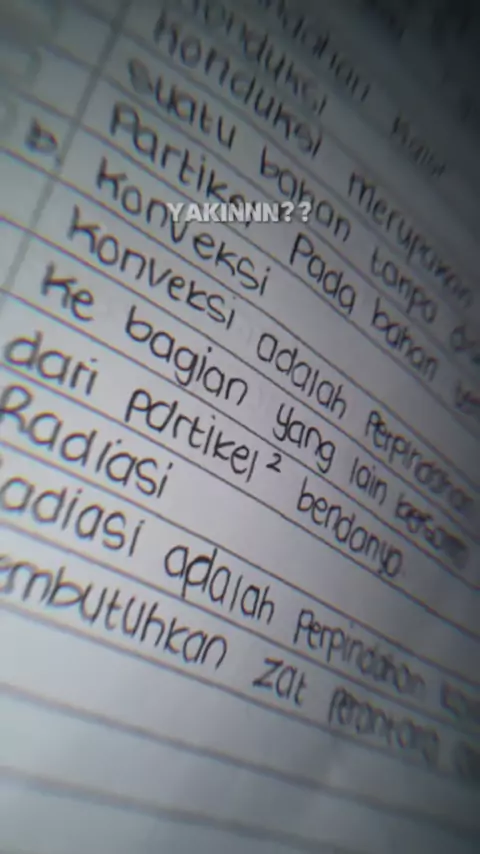 Konduksi
Konduksi merupakan
suatu bahan tanpa
Partikel Pada bahan
b. Konveksi
YAKINNN??
Konveksi adalah Perpindahan
ke bagian yang lain bersama
dari partikel² bendanya
Radiasi
adiasi adalah Perpindahan
embutuhkan zat Perantara